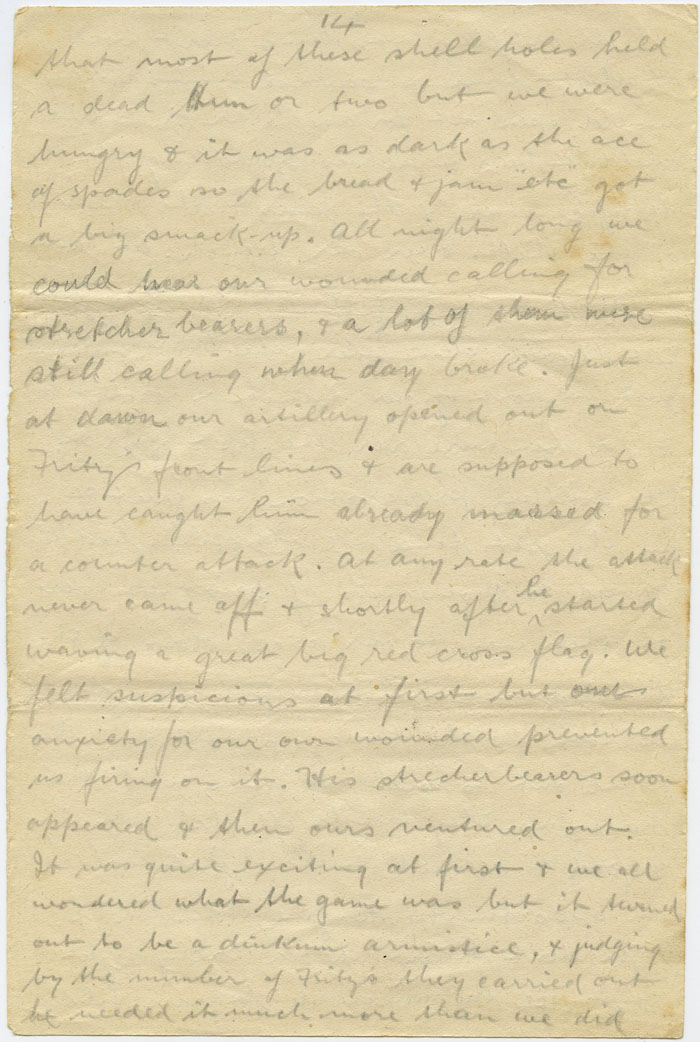 14
that most of these shell holes held
a dead Hun or two but we were
hungry & it was as dark as the ace
of spades so the bread & jam "etc" got
a big smack-up. All night long we
could hear our wounded calling for
stretcher bearers, & a lot of them were
still calling when day broke. Just
at dawn our artillery opened out on
Fritzy's front lines & are supposed to
have caught him already massed for
a counter attack. At any rate the attack
never came off & shortly after he started
waving a great big red cross flag. We
felt suspicious at first but our
anxiety for our own wounded prevented
us firing on it. His strecherbearers soon
appeared & then ours ventured out.
It was quite exciting at first & we all
wondered what the game was but it turned
out to be a dinkum armistice, & judging
by the number of Fritzs they carried out
he needed it much more than we did